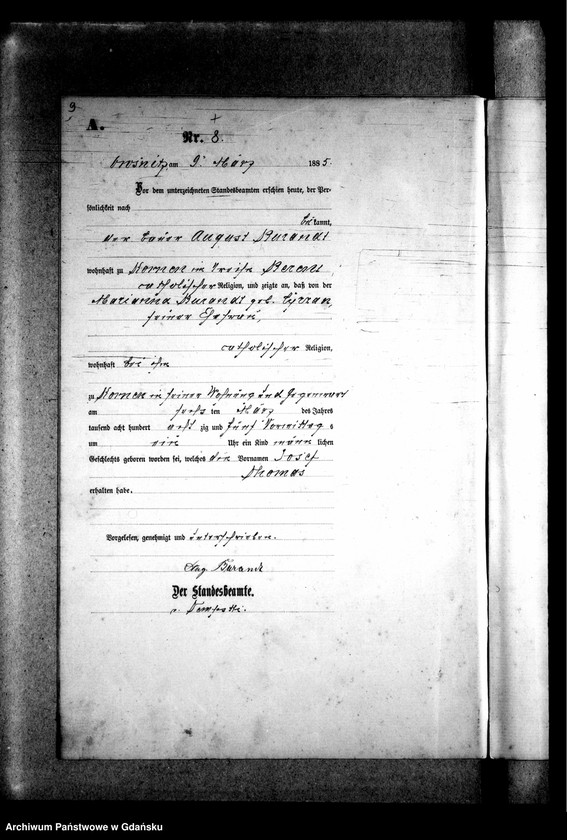 9
A.
Nr. 8.
am 9. März 1885.
Vor dem unterzeichneten Standesbeamten erschien heute, der Per-
sönlichkeit nach
bekannt,
der Bauer August Burandt
wohnhaft zu Kornen im Kreise Berent,
catholischer Religion, und zeigte an, daß von der
Marianna Burandt geb. Cyrzan,
seiner Ehefrau,
catholischer Religion,
wohnhaft bei ihm
zu Kornen in seiner Wohnung und Gegenwart
am sechsten März des Jahres
tausend acht hundert achtzig und fünf Vormittags
um ein Uhr ein Kind männlichen
Geschlechts geboren worden sei, welches den Vornamen Josef
Thomas
erhalten habe.
Vorgelesen, genehmigt und unterschrieben.
Aug. Burandt
Der Standesbeamte.
v.
Archiwum Państwowe w Gdańsku